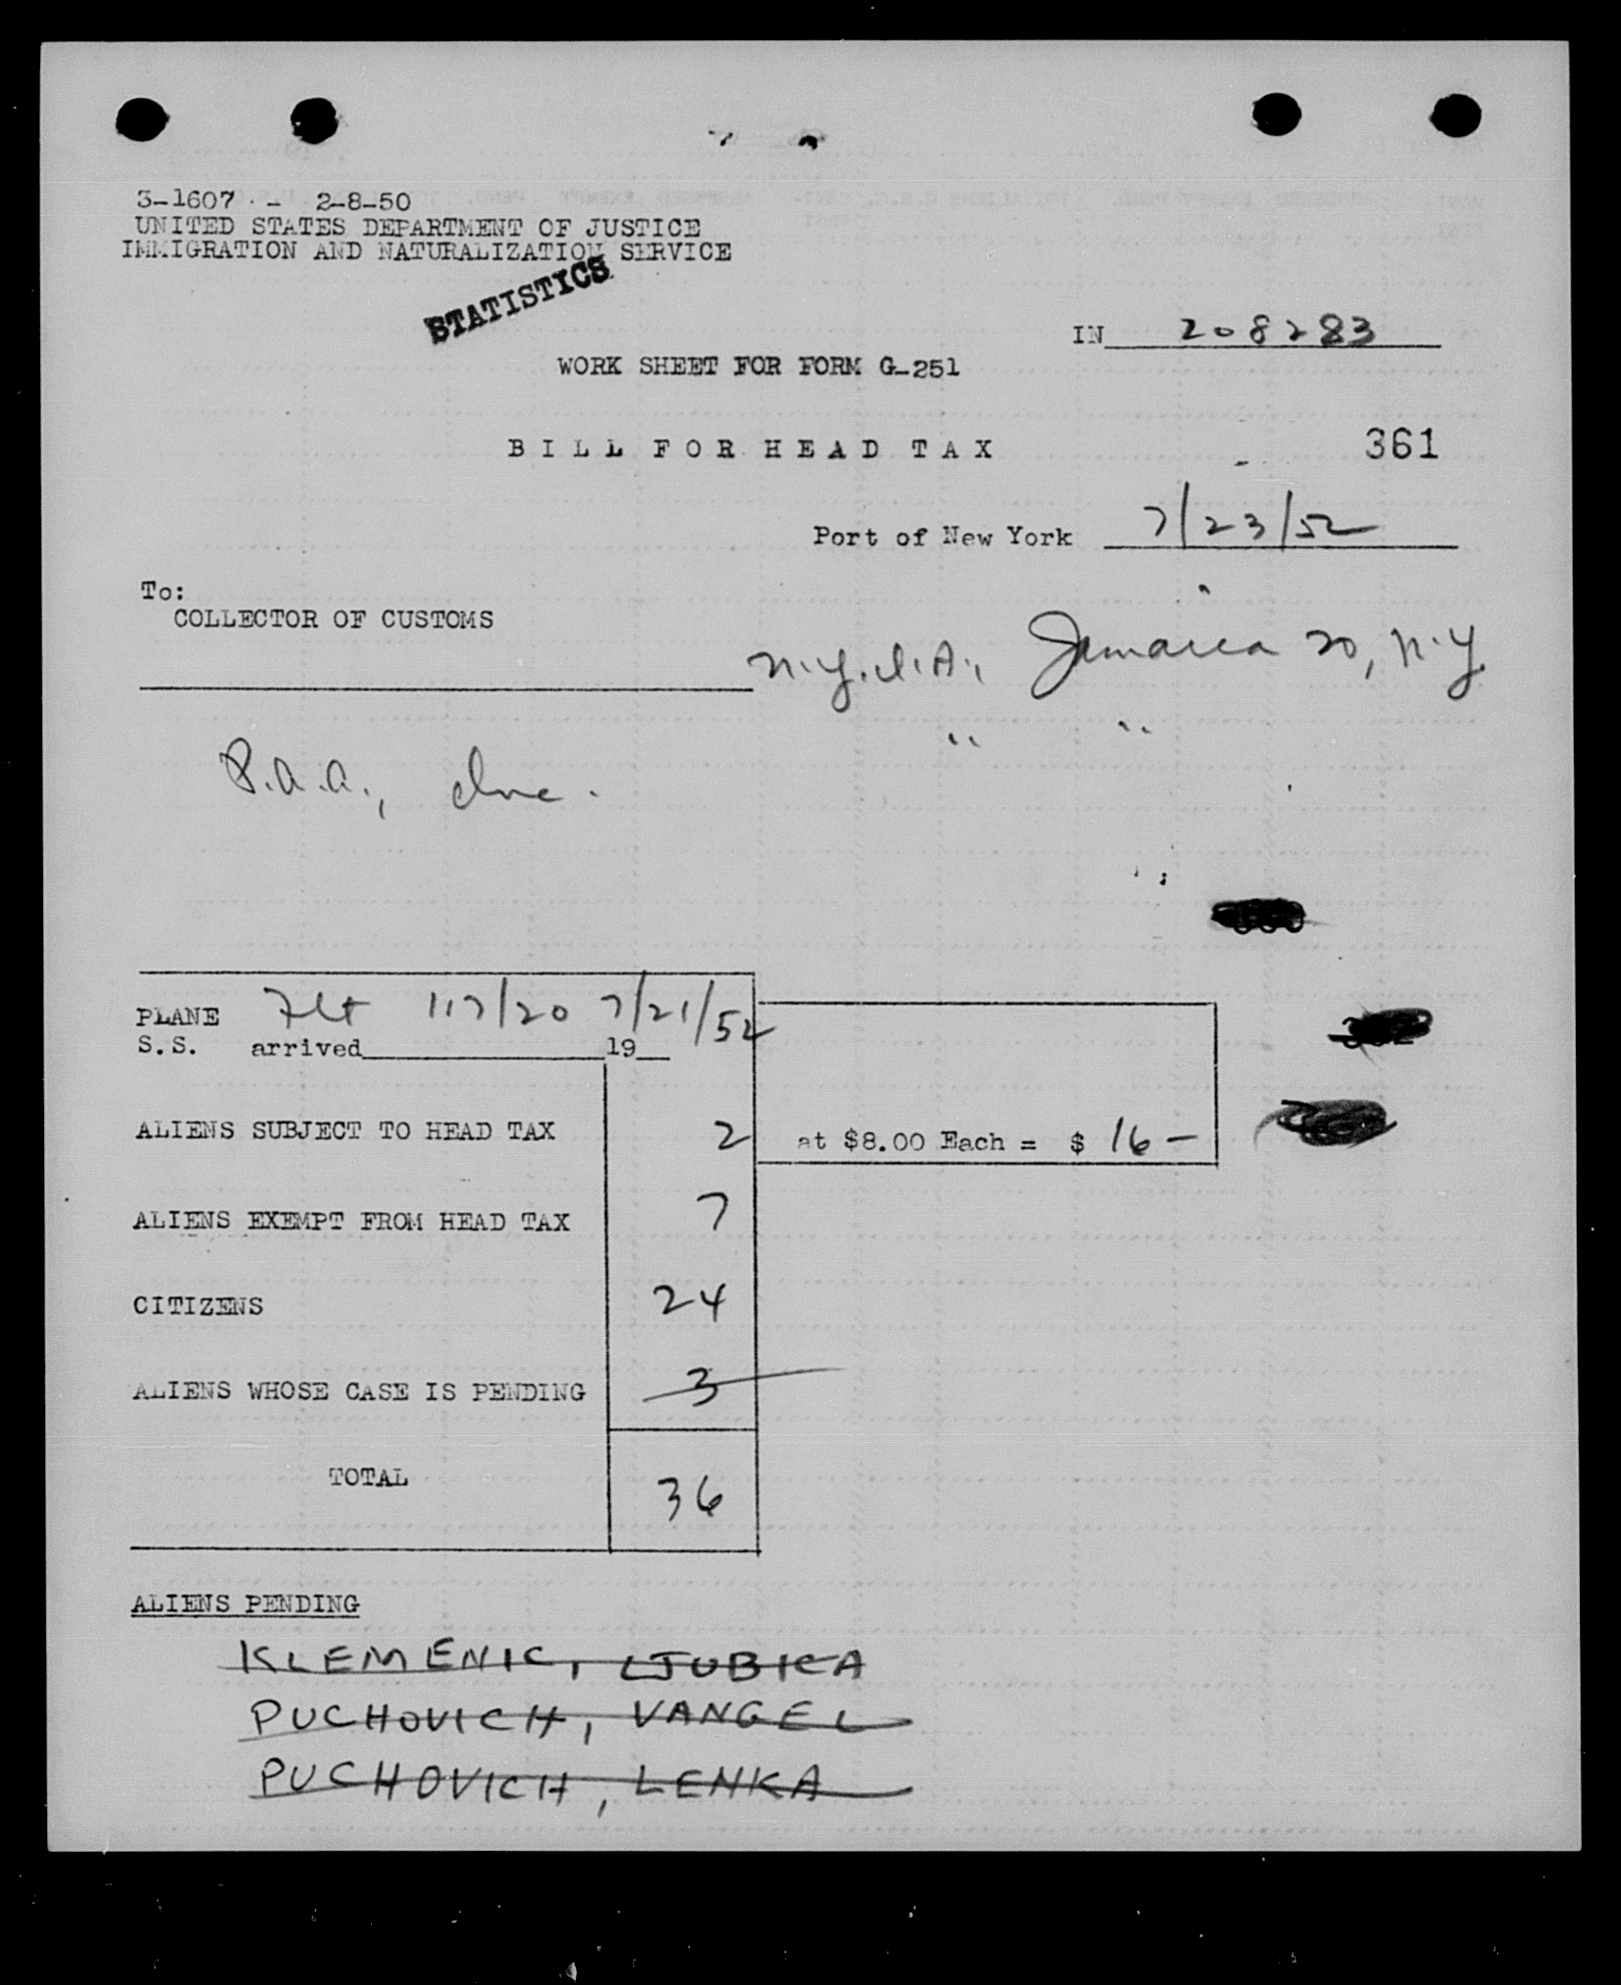 3-1607 - 2-8-50
UNITED STATES DEPARTMENT OF JUSTICE
IMMIGRATION AND NATURALIZATION SERVICE
STATISTICS
IN 208283
WORK SHEET FOR FORM G-251
BILL FOR HEAD TAX 361
Port of New York 7/23/52
To:
COLLECTOR OF CUSTOMS
N.Y.I.A., Jamaica 20, N.Y.
" "
P.A.A., Inc.
PLANE Flt 117/20 7/21/52
S.S. arrived 19
ALIENS SUBJECT TO HEAD TAX 2 at $8.00 Each = $ 16 -
ALIENS EXEMPT FROM HEAD TAX 7
CITIZENS 24
ALIENS WHOSE CASE IS PENDING 3
TOTAL 36
ALIENS PENDING
KLEMENIC, LJUBICA
PUCHOVICH, VANGEL
PUCHOVICH, LENKA